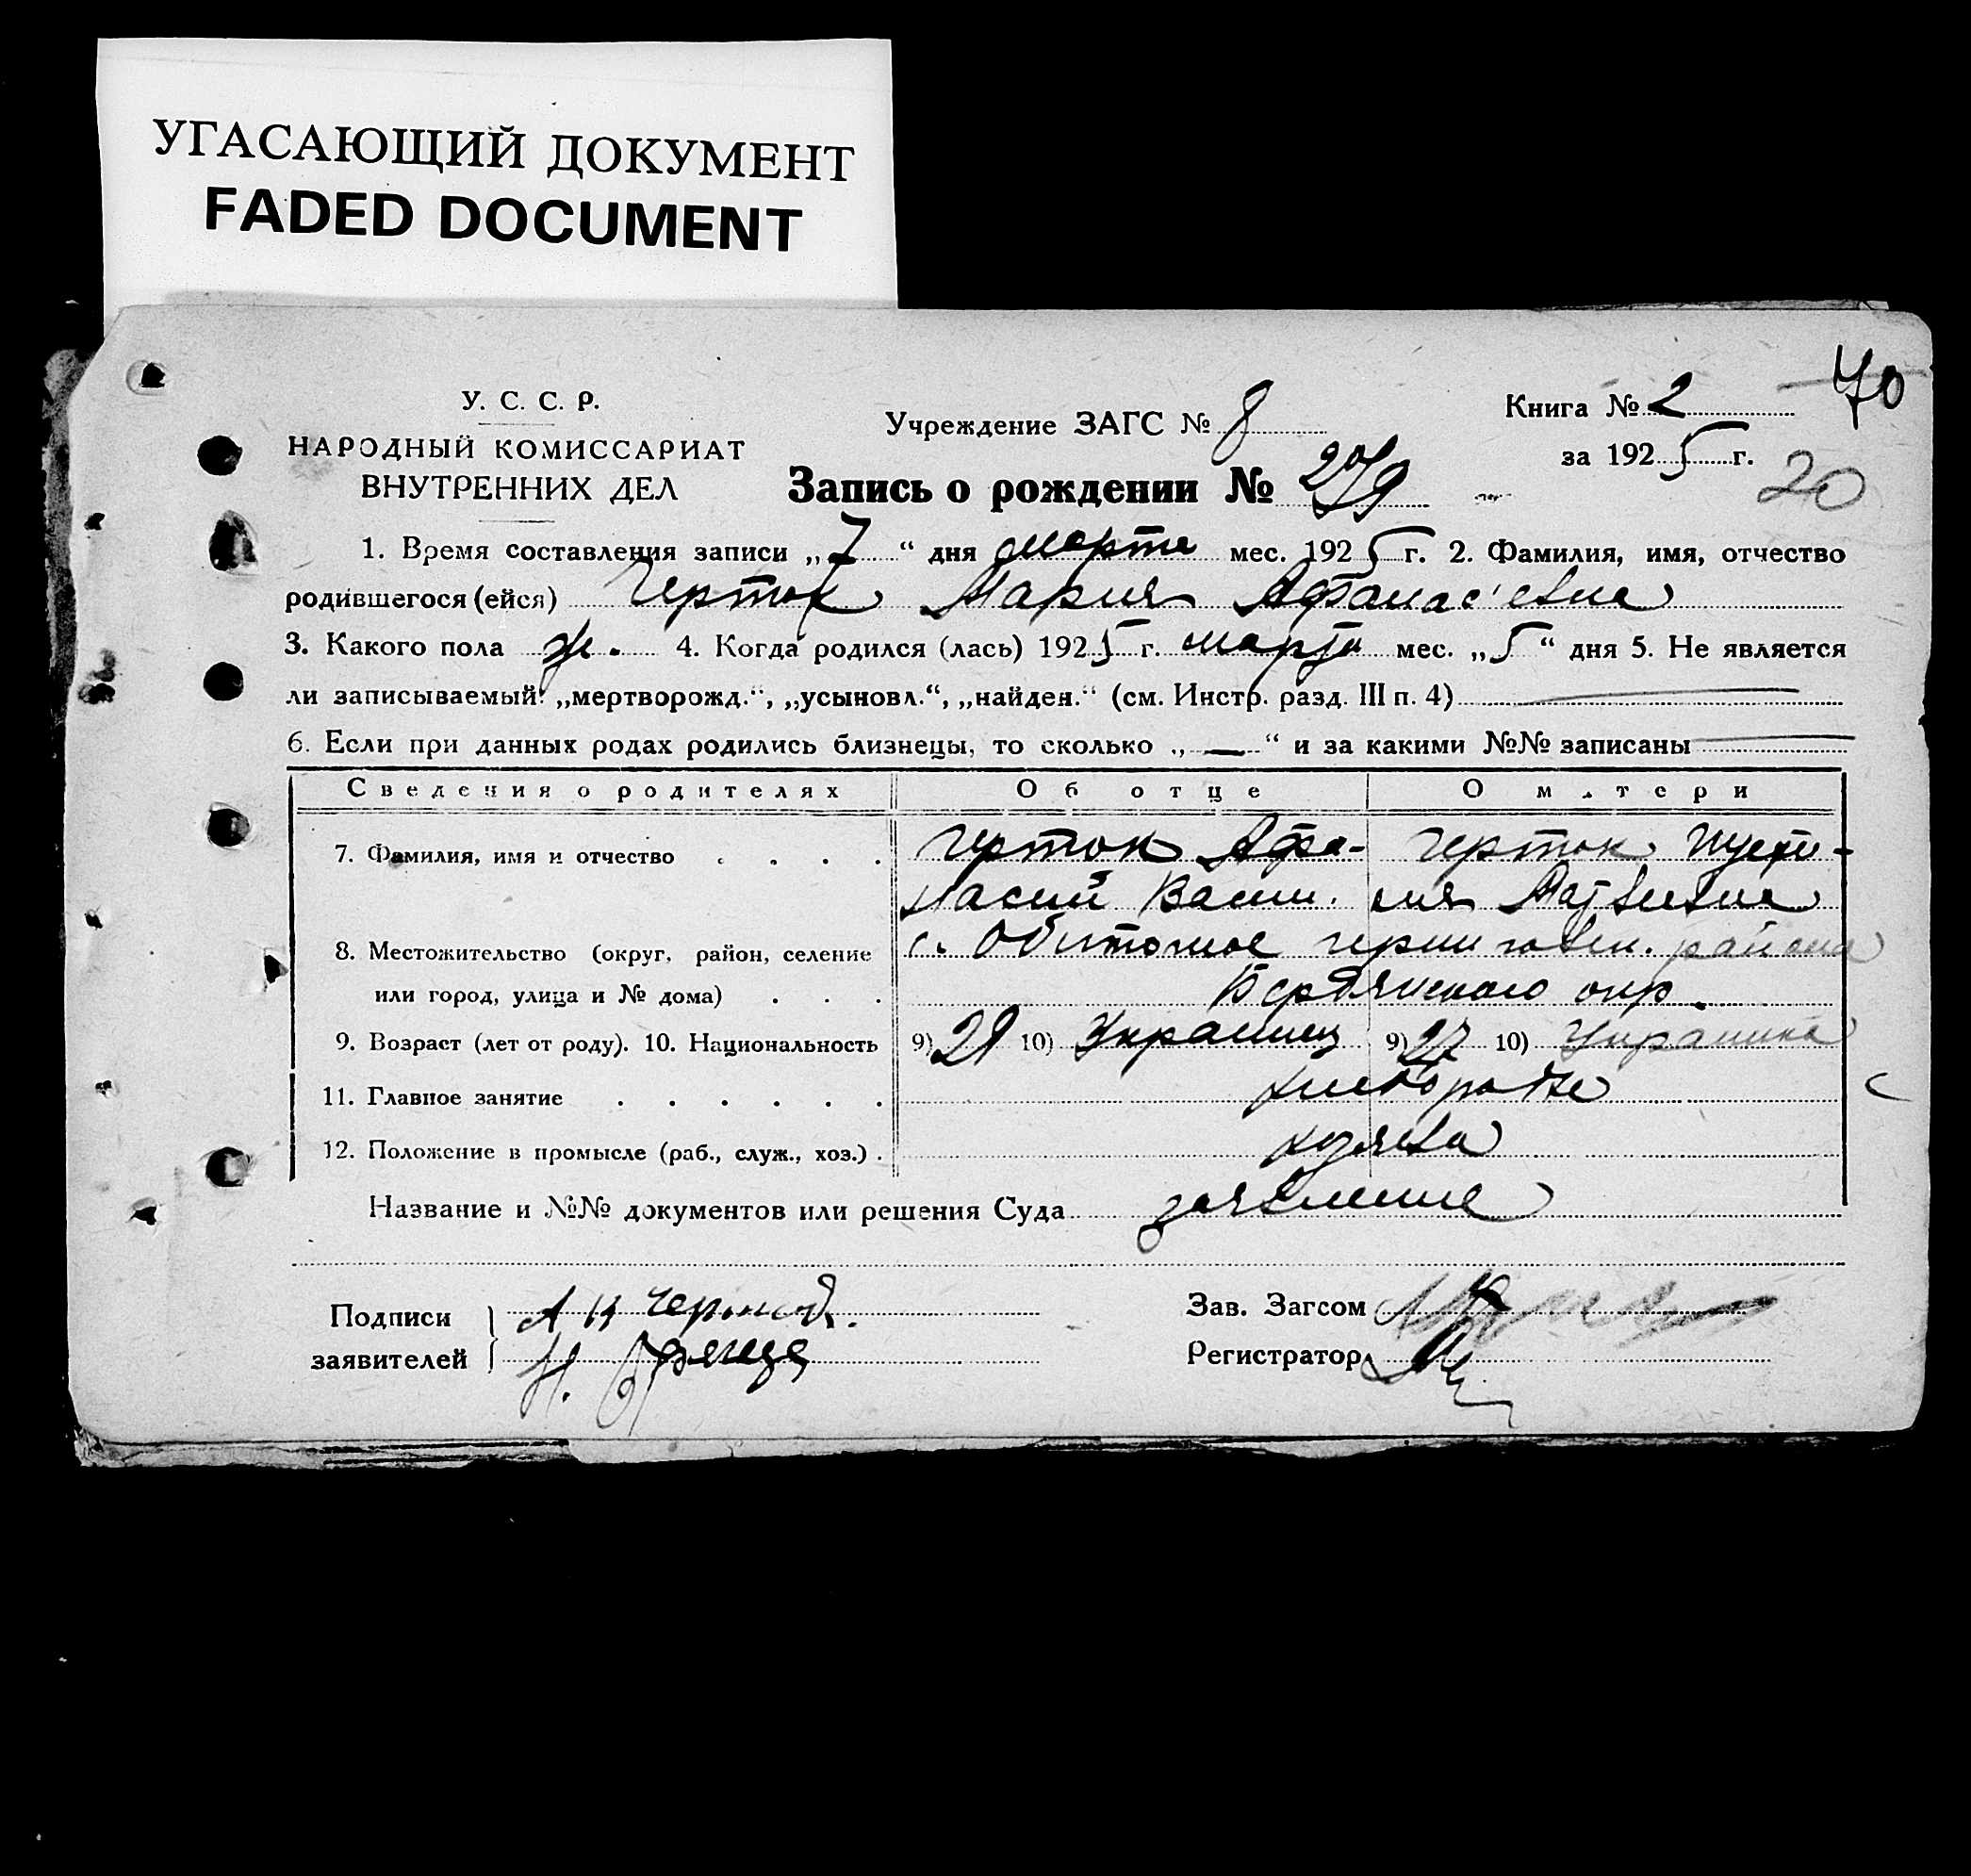 УГАСАЮЩИЙ ДОКУМЕНТ
FADED DOCUMENT
70
У. С. С. Р.
НАРОДНЫЙ КОМИССАРИАТ
ВНУТРЕННИХ ДЕЛ
Учреждение ЗАГС № 8
Книга № 2
за 1925 г.
20
Запись о рождении №
1. Время составления записи „7“ дня марта мес. 1925 г. 2. Фамилия, имя, отчество
родившегося (ейся) Черток Мария Афанас'евна
3. Какого пола ж. 4. Когда родился (лась) 1925 г. марта мес. „5“ дня 5. Не является
ли записываемый: „мертворожд.“, „усыновл.“, „найден.“ (см. Инстр. разд. III п. 4)
6. Если при данных родах родились близнецы, то сколько „—“ и за какими №№ записаны
Сведения о родителях Об отце О матери
7. Фамилия, имя и отчество Черток Афа- Черток
насий Васил. Матвеевна
8. Местожительство (округ, район, селение с. Обиточное черниговск. района
или город, улица и № дома) Бердянского окр.
9. Возраст (лет от роду). 10. Национальность 9) 29 10) Украинец 9) 27 10) Украинка
11. Главное занятие хлебороб
12. Положение в промысле (раб., служ., хоз.) хозяева
Название и №№ документов или решения Суда заявление
Подписи
заявителей
Зав. Загсом
Регистратор